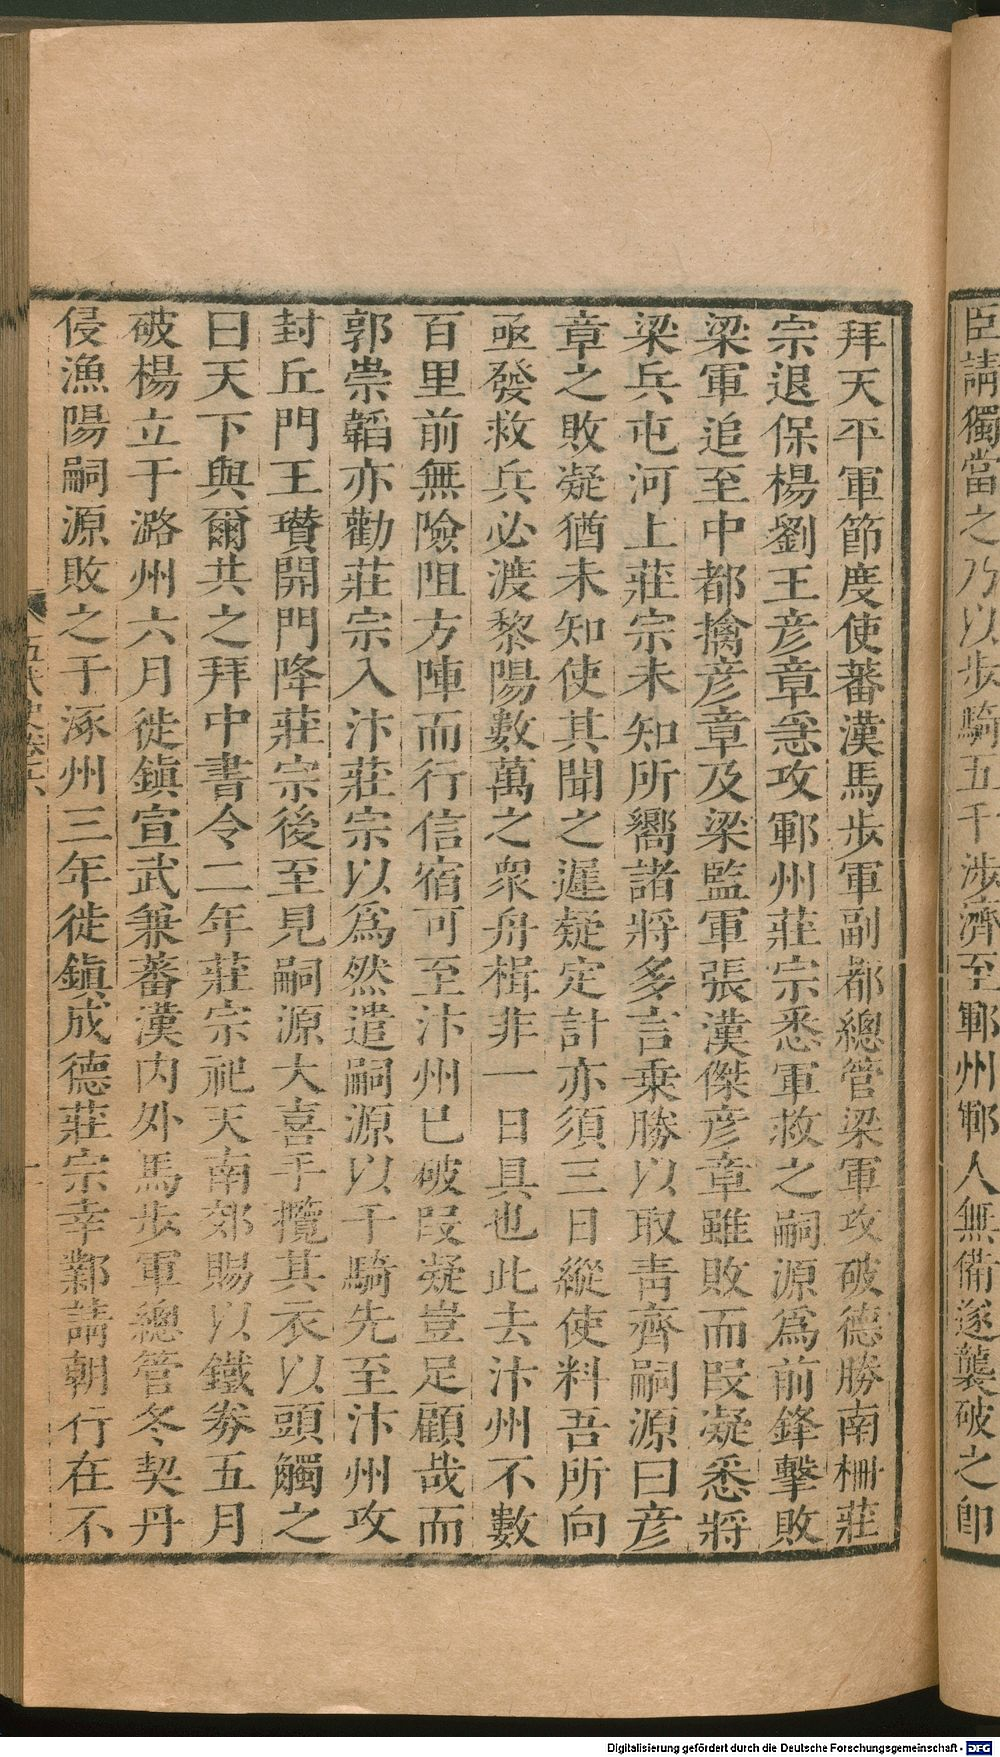 臣請獨當之乃以步騎五千涉濟至鄆州鄆人無備遂襲破之即
拜天平軍節度使蕃漢馬步軍副都總管梁軍攻破德勝南柵莊
宗退保楊劉王彥章急攻鄆州莊宗悉軍救之嗣源爲前鋒擊敗
梁軍追至中都擒彥章及梁監軍張漢傑彥章雖敗而段凝悉將
梁兵屯河上莊宗未知所嚮諸將多言乗勝以取青齊嗣源曰彥
章之敗凝猶未知使其聞之遲疑定計亦須三日縱使料吾所向
亟發救兵必渡黎陽數萬之衆舟楫非一日具也此去汴州不數
百里前無險阻方陣而行信宿可至汴州已破段凝豈足顧哉而
郭崇韜亦勸莊宗入汴莊宗以爲然遣嗣源以千騎先至汴州攻
封丘門王瓚開門降莊宗後至見嗣源大喜手攬其衣以頭觸之
曰天下與爾共之拜中書令二年莊宗祀天南郊賜以鐵劵五月
破楊立于潞州六月徙鎭宣武兼蕃漢内外馬步軍總管冬契丹
侵漁陽嗣源敗之于涿州三年徙鎭成德莊宗幸鄴請朝行在不
五代史卷六
Digitalisierung gefördert durch die Deutsche Forschungsgemeinschaft - DFG